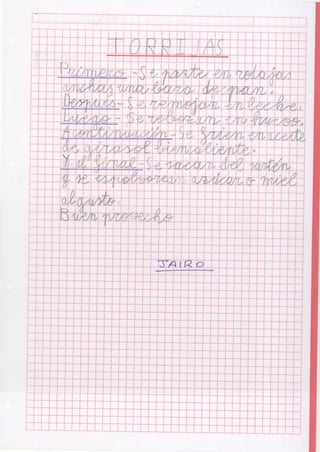 TORRIJAS
Primero - Se parte en rodajas
anchas una bara de pan.
Después - Se remojan en leche.
Luego - Se rebozan en huevo.
A continuación - Se frien en aceite
de girasol bien caliente.
Y al final - Se sacan del sartén
y se espolvorean azúcar o miel
al gusto.
Buen provecho
JAIRO